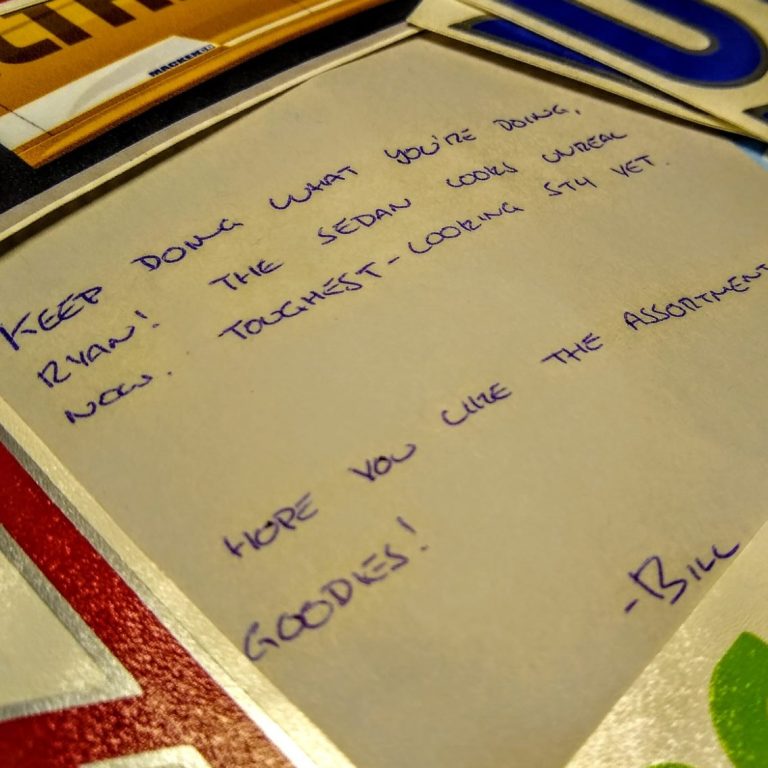 MACKENZI
KEEP DOING WHAT YOU'RE DOING,
RYAN! THE SEDAN LOOKS UNREAL
NOW. TOUGHEST-LOOKING STY YET.
HOPE YOU LIKE THE ASSORTMENT
GOODIES!
-BILL